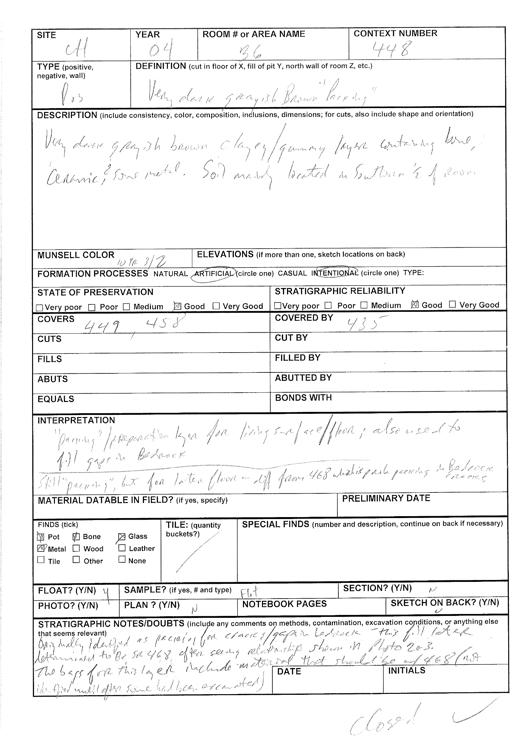 SITE YEAR ROOM # or AREA NAME CONTEXT NUMBER
CH 04 36 448
TYPE (positive, negative, wall) DEFINITION (cut in floor of X, fill of pit Y, north wall of room Z, etc.)
Pos Very dark grayish Brown "Packing"
DESCRIPTION (include consistency, color, composition, inclusions, dimensions; for cuts, also include shape and orientation)
Very dark grayish brown clayey/gummy layer containing bone,
ceramic, & some metal. Soil mainly located in Southern ½ of room
MUNSELL COLOR 10YR 3/2 ELEVATIONS (if more than one, sketch locations on back)
FORMATION PROCESSES NATURAL ARTIFICIAL (circle one) CASUAL INTENTIONAL (circle one) TYPE:
STATE OF PRESERVATION STRATIGRAPHIC RELIABILITY
Very poor Poor Medium Good Very Good Very poor Poor Medium Good Very Good
COVERS 449, 458 COVERED BY 435
CUTS CUT BY
FILLS FILLED BY
ABUTS ABUTTED BY
EQUALS BONDS WITH
INTERPRETATION
"packing"/preparation layer for living surface/floor; also used to
fill gaps in Bedrock
Still "packing", but for later floor – diff from 468 which is packing in Bedrock
MATERIAL DATABLE IN FIELD? (if yes, specify) PRELIMINARY DATE
FINDS (tick) TILE: (quantity buckets?) SPECIAL FINDS (number and description, continue on back if necessary)
Pot Bone Glass
Metal Wood Leather
Tile Other None
FLOAT? (Y/N) Y SAMPLE? (if yes, # and type) Flot SECTION? (Y/N) N
PHOTO? (Y/N) PLAN? (Y/N) N NOTEBOOK PAGES SKETCH ON BACK? (Y/N)
STRATIGRAPHIC NOTES/DOUBTS (include any comments on methods, contamination, excavation conditions, or anything else
that seems relevant)
Originally identified as packing for cracks/gaps in bedrock this fill later
determined to be SU 468 after seeing relationship shown in photo 203.
The bags for this layer include material that should be w/ 468 (not
identified until after some had been excavated)
DATE INITIALS
Closed ✓